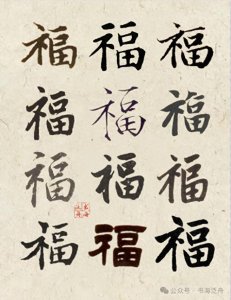 福 福 福
福 福 福
福 福 福
福 福 福
公众号 · 书海泛舟